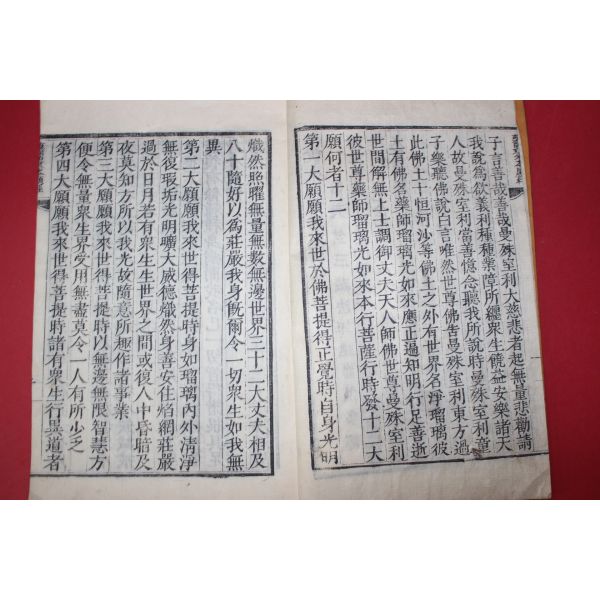 子言善哉善哉曼殊室利大慈悲者起無量悲勸請
我說為欲義利種種業障所纏衆生饒益安樂諸天
人故曼殊室利當善憶念聽我所說時曼殊室利童
子樂聽佛說白言唯然世尊佛告曼殊室利東方過
此佛土十恒河沙等佛土之外有世界名淨瑠璃彼
土有佛名藥師瑠璃光如來應正遍知明行足善逝
世間解無上士調御丈夫天人師佛世尊曼殊室利
彼世尊藥師瑠璃光如來本行菩薩行時發十二大
願何者十二
第一大願願我來世於佛菩提得正覺時自身光明
熾然照曜無量無數無邊世界三十二大丈夫相及
八十隨好以為莊嚴我身既爾令一切衆生如我無
異
第二大願願我來世得菩提時身如瑠璃內外清淨
無復瑕垢光明曠大威德熾然身善安住焰網莊嚴
過於日月若有衆生生世界之間或復人中昏暗及
夜莫知方所以我光故隨意所趣作諸事業
第三大願願我來世得菩提時以無邊無限智慧方
便令無量衆生界受用無盡莫令一人有所少乏
第四大願願我來世得菩提時諸有衆生行異道者